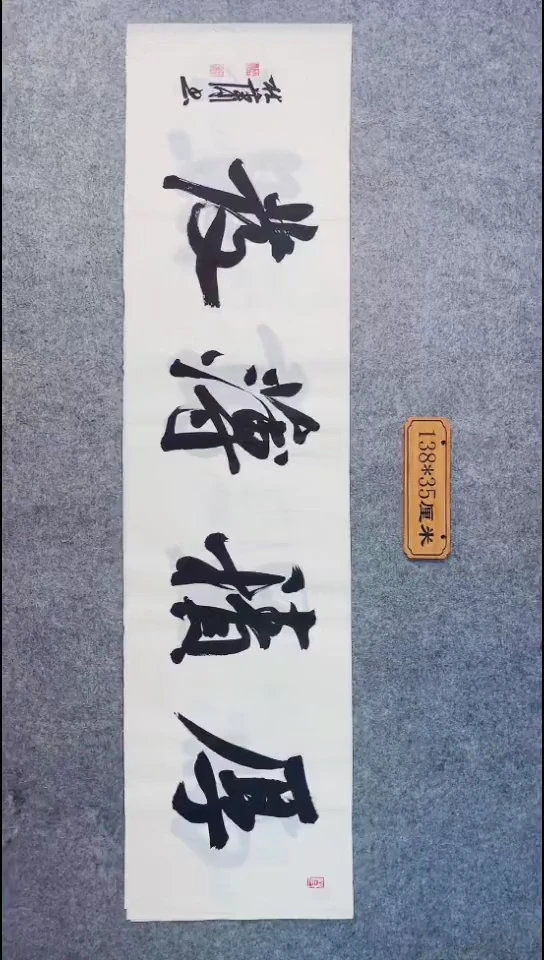 厚積薄发
138*35厘米